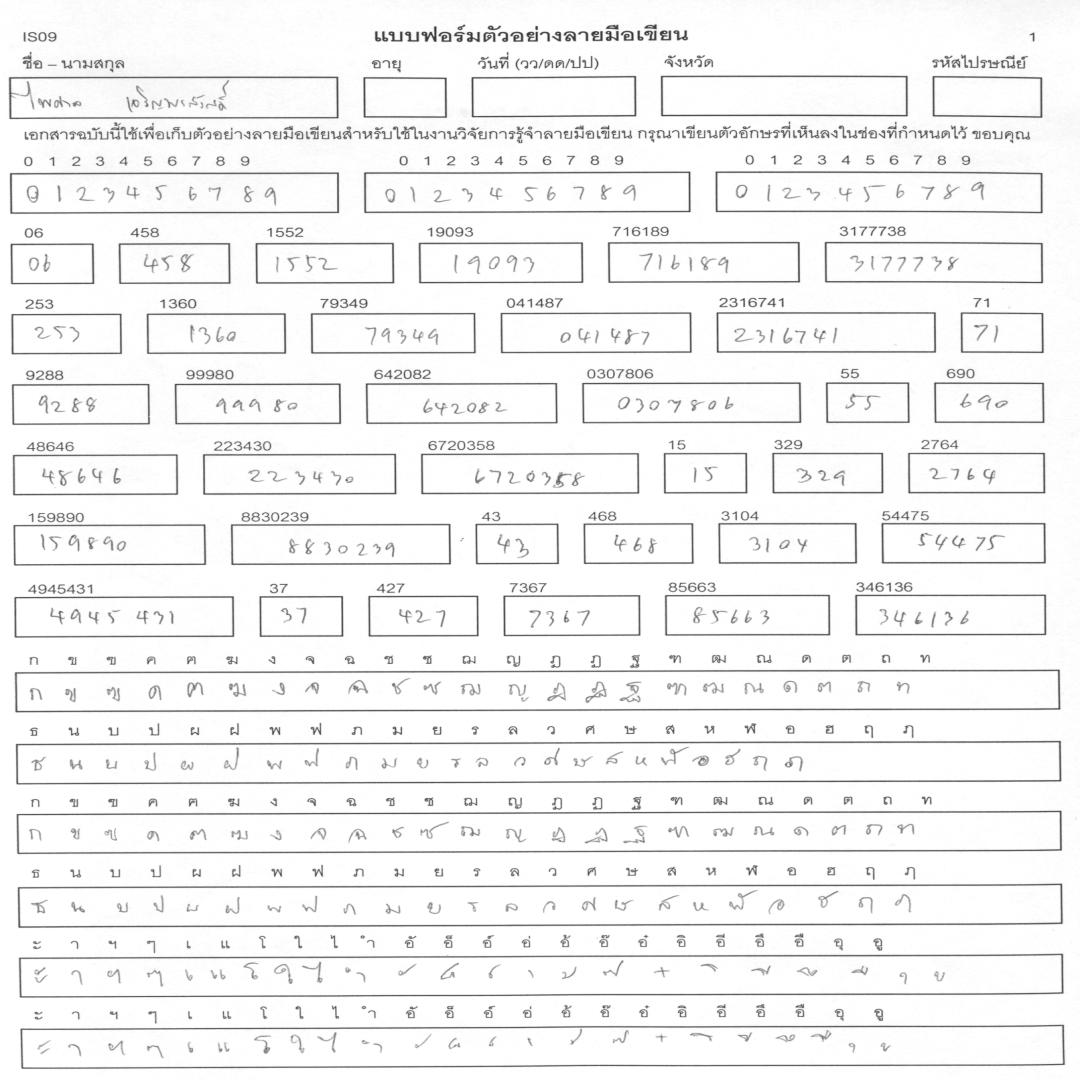 IS09 แบบฟอร์มตัวอย่างลายมือเขียน 1
ชื่อ – นามสกุล อายุ วันที่ (วว/ดด/ปป) จังหวัด รหัสไปรษณีย์
ไพศาล
เอกสารฉบับนี้ใช้เพื่อเก็บตัวอย่างลายมือเขียนสำหรับใช้ในงานวิจัยการรู้จำลายมือเขียน กรุณาเขียนตัวอักษรที่เห็นลงในช่องที่กำหนดไว้ ขอบคุณ
0 1 2 3 4 5 6 7 8 9 0 1 2 3 4 5 6 7 8 9 0 1 2 3 4 5 6 7 8 9
0 1 2 3 4 5 6 7 8 9 0 1 2 3 4 5 6 7 8 9 0 1 2 3 4 5 6 7 8 9
06 458 1552 19093 716189 3177738
06 458 1552 19093 716189 3177738
253 1360 79349 041487 2316741 71
253 1360 79349 041487 2316741 71
9288 99980 642082 0307806 55 690
9288 99980 642082 0307806 55 690
48646 223430 6720358 15 329 2764
48646 223430 6720358 15 329 2764
159890 8830239 43 468 3104 54475
159890 8830239 43 468 3104 54475
4945431 37 427 7367 85663 346136
4945431 37 427 7367 85663 346136
ก ข ฃ ค ฅ ฆ ง จ ฉ ช ซ ฌ ญ ฎ ฏ ฐ ฑ ฒ ณ ด ต ถ ท
ก ข ฃ ค ฅ ฆ ง จ ฉ ช ซ ฌ ญ ฎ ฏ ฐ ฑ ฒ ณ ด ต ถ ท
ธ น บ ป ผ ฝ พ ฟ ภ ม ย ร ล ว ศ ษ ส ห ฬ อ ฮ ฤ ฦ
ธ น บ ป ผ ฝ พ ฟ ภ ม ย ร ล ว ศ ษ ส ห ฬ อ ฮ ฤ ฦ
ก ข ฃ ค ฅ ฆ ง จ ฉ ช ซ ฌ ญ ฎ ฏ ฐ ฑ ฒ ณ ด ต ถ ท
ก ข ฃ ค ฅ ฆ ง จ ฉ ช ซ ฌ ญ ฎ ฏ ฐ ฑ ฒ ณ ด ต ถ ท
ธ น บ ป ผ ฝ พ ฟ ภ ม ย ร ล ว ศ ษ ส ห ฬ อ ฮ ฤ ฦ
ธ น บ ป ผ ฝ พ ฟ ภ ม ย ร ล ว ศ ษ ส ห ฬ อ ฮ ฤ ฦ
ะ า ฯ ๆ เ แ โ ใ ไ ำ อั อ็ อ์ อ่ อ้ อ๊ อ๋ อิ อี อึ อื อุ อู
ะ า ฯ ๆ เ แ โ ใ ไ ำ ั ็ ์ ่ ้ ๊ ๋ ิ ี ึ ื ุ ู
ะ า ฯ ๆ เ แ โ ใ ไ ำ อั อ็ อ์ อ่ อ้ อ๊ อ๋ อิ อี อึ อื อุ อู
ะ า ฯ ๆ เ แ โ ใ ไ ำ ั ็ ์ ่ ้ ๊ ๋ ิ ี ึ ื ุ ู